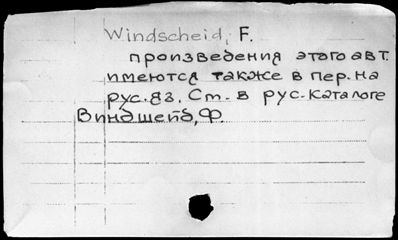 Windscheid, F.
произведения этого авт.
имеются также в пер. на
рус. яз. См. в рус. каталоге
Виндшейд, Ф.